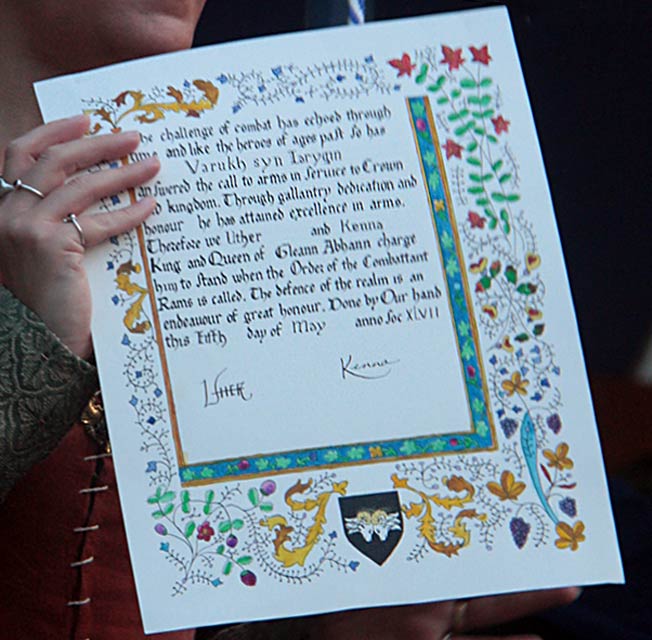 he challenge of combat has echoed through
time and like the heroes of ages past so has
Varukh syn Tarygin
answered the call to arms in service to Crown
kingdom. Through gallantry dedication and
honour he has attained excellence in arms.
Therefore we Uther and Kenna
King and Queen of Gleann Abhann charge
him to Stand when the Order of the Combattant
Rams is called. The defence of the realm is an
endeavour of great honour. Done by Our hand
this Fifth day of May anno Soc XLVII
Uther
Kenna